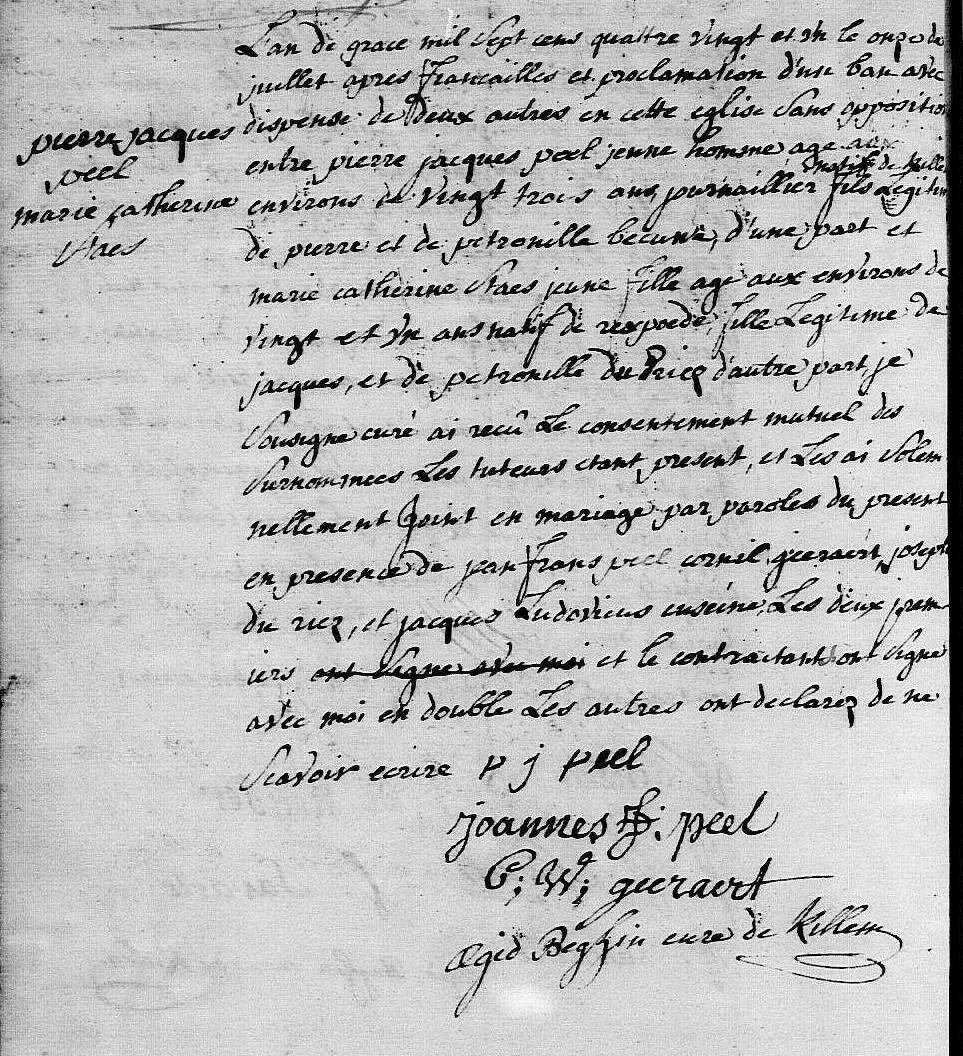 pierre jacques
peel
marie catherine
Staes
L'an de grace mil Sept cens quattre vingt et vn le onze de
juillet apres francailles et proclamation d'un ban avec
dispense de Deux autres en cette eglise Sans opposition
entre pierre jacques peel jeune homme age aux
environs de vingt trois ans journaillier natif de Killem fils Legitime
de pierre et de petronille becuwe, d'une part et
marie catherine Staes jeune fille age aux environs de
vingt et vn ans natif de rexpoede, fille Legitime de
jacques, et de petronille du Riez d'autre part je
Sousigne curé ai recû Le consentement mutuel des
Surnommees Les tuteurs etant present, et Les ai Solem
nellement Joint en mariage par paroles du present
en presence de jean frans peel cornil gueraert, joseph
du riez, et jacques Ludovicus Les deux prem
iers ont Signe avec moi et le contractant ont Signe
avec moi en double Les autres ont declarez de ne
Scavoir ecrire p j peel
joannes fr: peel
C; W; gueraert
Ægid Beghin cure de Killem